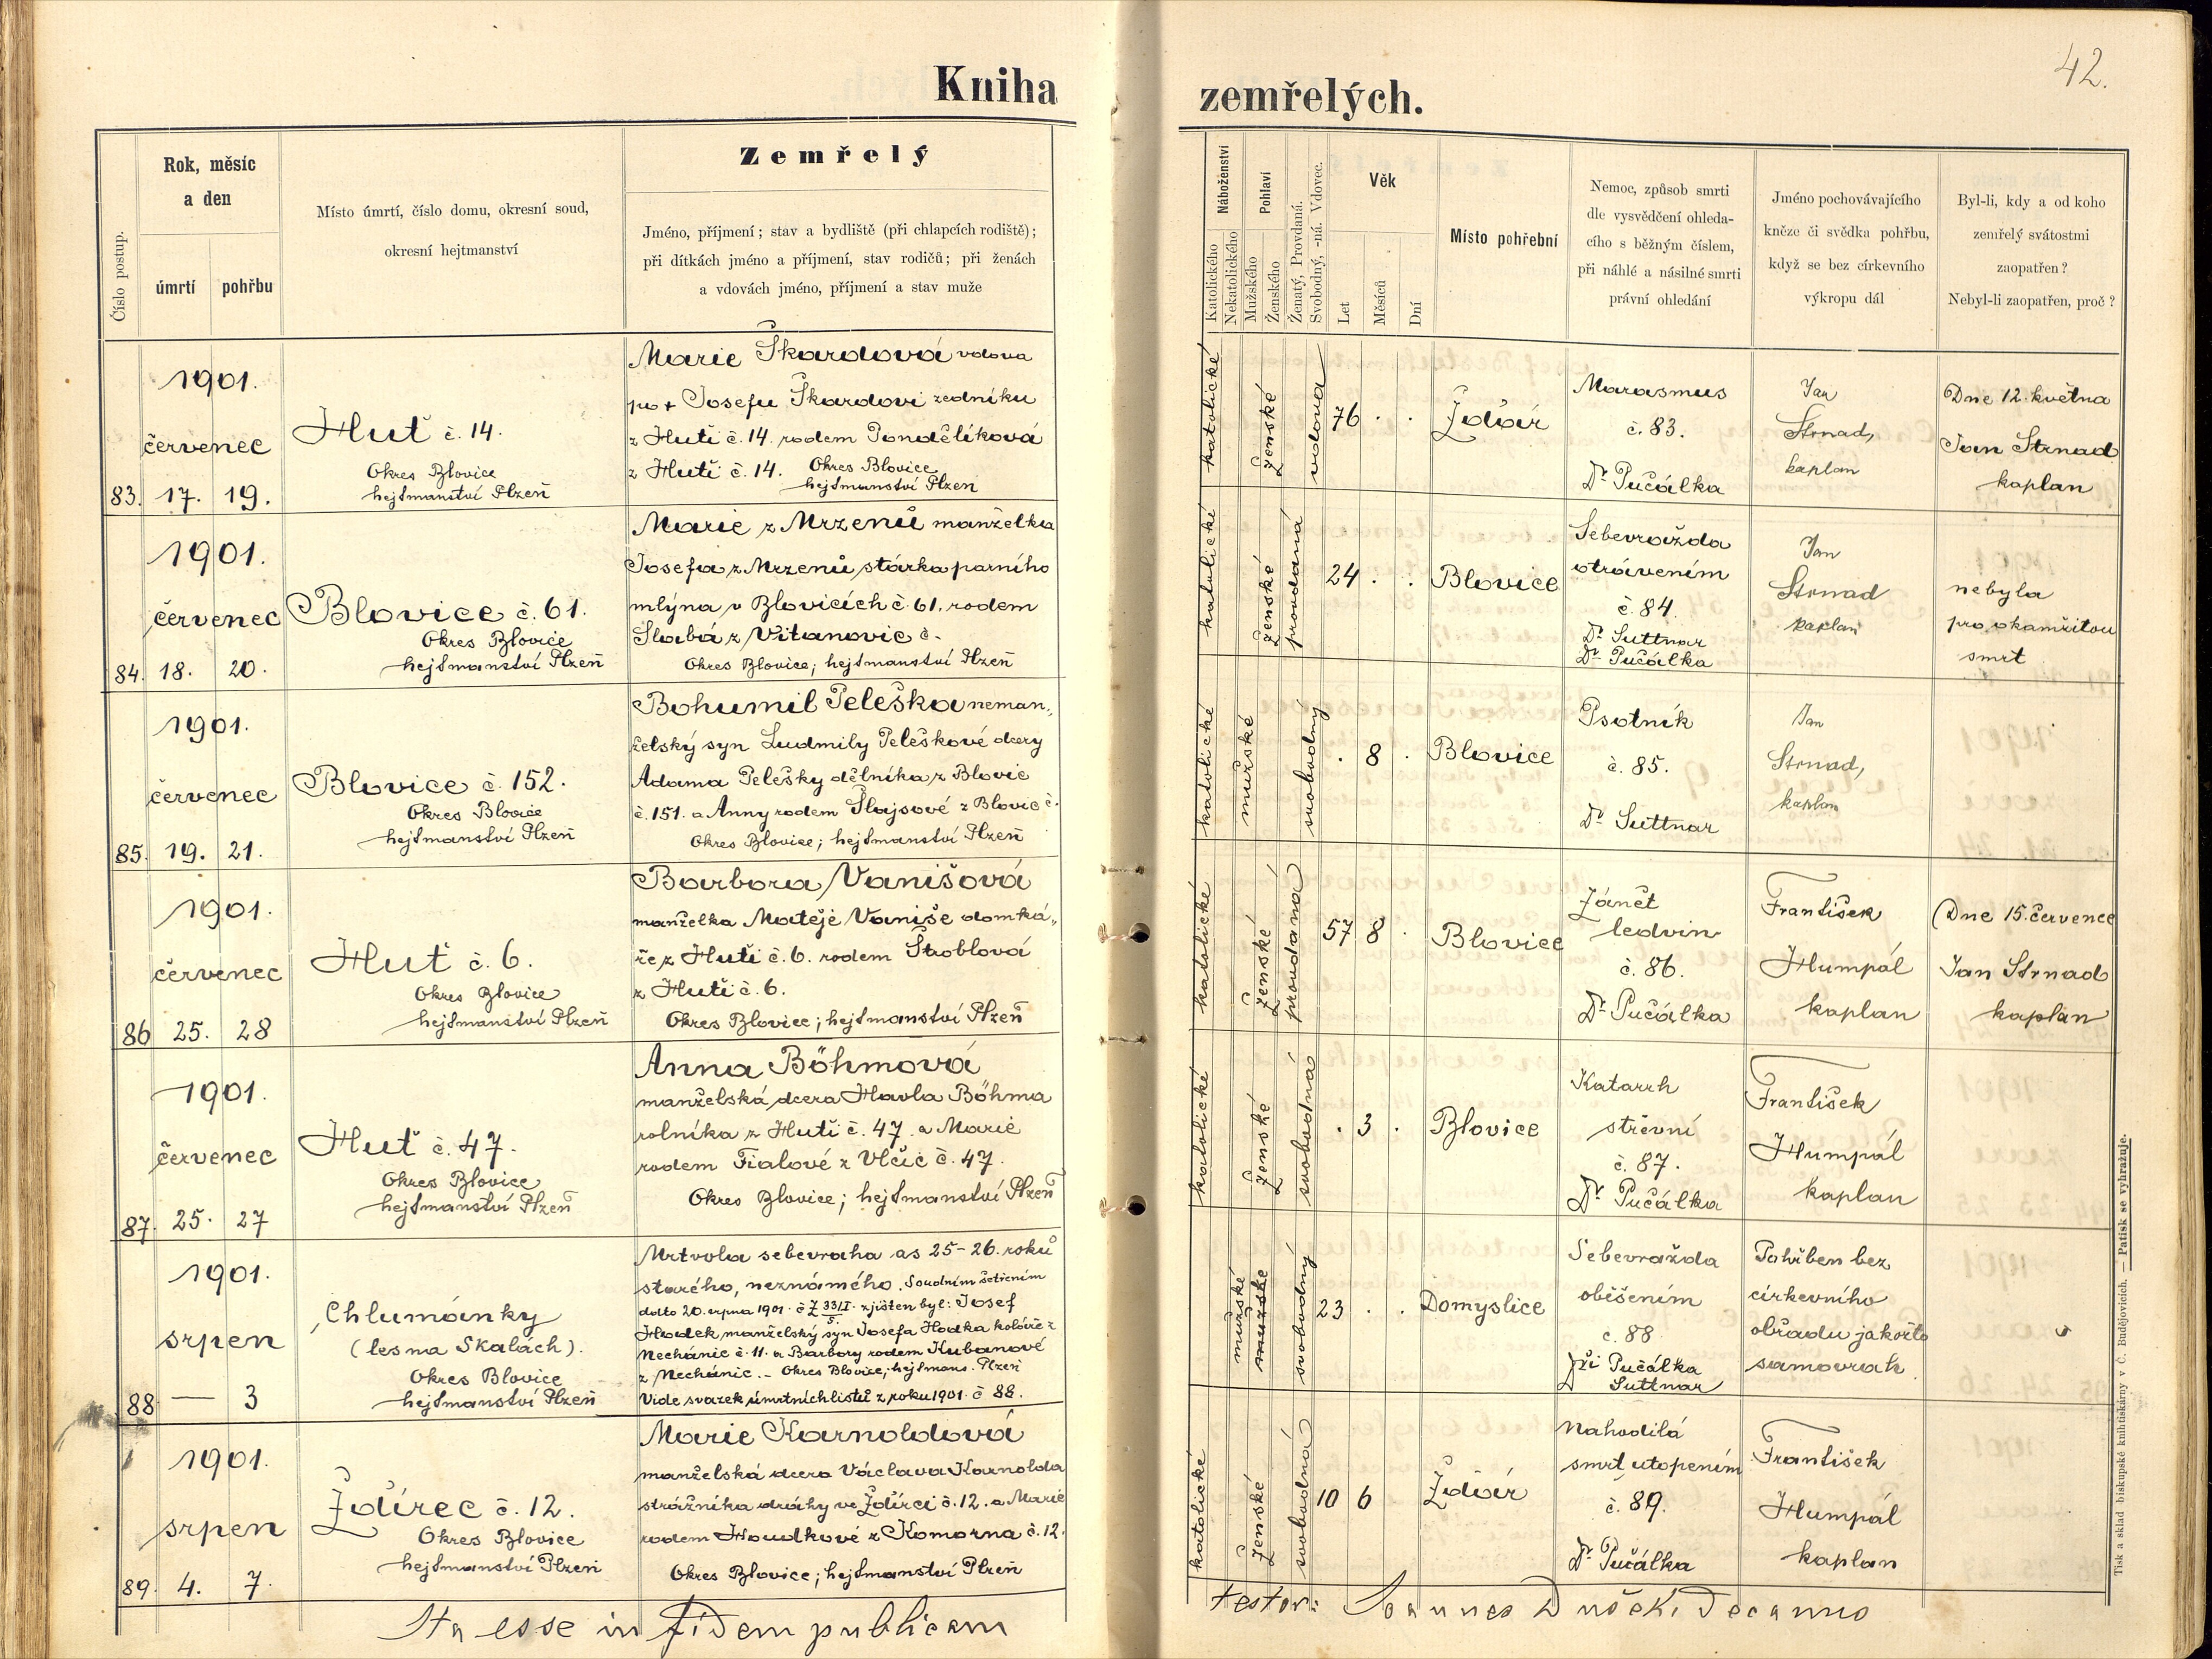 Kniha
zemřelých.
42.
Číslo postup.
Rok, měsíc
a den
úmrtí
pohřbu
Místo úmrtí, číslo domu, okresní soud,
okresní hejtmanství
Zemřelý
Jméno, příjmení; stav a bydliště (při chlapcích rodiště);
při dítkách jméno a příjmení, stav rodičů; při ženách
a vdovách jméno, příjmení a stav muže
Náboženství
Katolického
Nekatolického
Pohlaví
Mužského
Ženského
Ženatý, Provdaná.
Svobodný, -ná. Vdovec.
Věk
Let
Měsíců
Dní
Místo pohřební
Nemoc, způsob smrti
dle vysvědčení ohleda-
cího s běžným číslem,
při náhlé a násilné smrti
právní ohledání
Jméno pochovávajícího
kněze či svědka pohřbu,
když se bez církevního
výkropu dál
Byl-li, kdy a od koho
zemřelý svátostmi
zaopatřen?
Nebyl-li zaopatřen, proč?
83.
1901.
červenec
17. 19.
Huť č. 14.
Okres Blovice
hejtmanství Plzeň
Marie Škardová vdova
po + Josefu Škardovi zedníku
z Huti č. 14. rodem Pondělíková
z Huti č. 14. Okres Blovice
hejtmanství Plzeň
katolické
ženské
vdova
76 . .
Ždár
Marasmus
č. 83.
Dr Pučálka
Jan
Strnad,
kaplan
Dne 12. května
Jan Strnad
kaplan
84.
1901.
červenec
18. 20.
Blovice č. 61.
Okres Blovice
hejtmanství Plzeň
Marie z Mrzenů manželka
Josefa z Mrzenů, stárka parního
mlýna v Blovicích č. 61. rodem
Slabá z Vitanovic č. -
Okres Blovice; hejtmanství Plzeň
katolické
ženské
provdaná
24 . .
Blovice
Sebevražda
otrávením
č. 84.
Dr Suttnar
Dr Pučálka
Jan
Strnad
kaplan
nebyla
pro okamžitou
smrt
85.
1901.
červenec
19. 21.
Blovice č. 152.
Okres Blovice
hejtmanství Plzeň
Bohumil Peleška neman„
želský syn Ludmily Peleškové dcery
Adama Pelešky dělníka z Blovic
č. 151. a Anny rodem Šlajsové z Blovic č.
Okres Blovice; hejtmanství Plzeň
katolické
mužské
svobodný
. 8 .
Blovice
Psotník
č. 85.
Dr Suttnar
Jan
Strnad,
kaplan
86
1901.
červenec
25. 28
Huť č. 6.
Okres Blovice
hejtmanství Plzeň
Barbora Vanišová
manželka Matěje Vaniše domká„
ře z Huti č. 6. rodem Štroblová
z Huti č. 6.
Okres Blovice; hejtmanství Plzeň
katolické
ženské
provdaná
57 8 .
Blovice
Zánět
ledvin
č. 86.
Dr Pučálka
František
Humpál
kaplan
Dne 15. července
Jan Strnad
kaplan
87.
1901.
červenec
25. 27
Huť č. 47.
Okres Blovice
hejtmanství Plzeň
Anna Böhmová
manželská dcera Havla Böhma
rolníka z Huti č. 47. a Marie
rodem Fialové z Vlčic č. 47.
Okres Blovice; hejtmanství Plzeň
katolické
ženské
svobodná
. 3 .
Blovice
Katarrh
střevní
č. 87.
Dr Pučálka
František
Humpál
kaplan
88
1901.
srpen
— 3
Chlumánky
(les na Skalách).
Okres Blovice
hejtmanství Plzeň
Mrtvola sebevraha as 25-26. roků
starého, neznámého. Soudním šetřením
ddto 20. srpna 1901. č Z 33/I 5. zjištěn byl: Josef
Hodek manželský syn Josefa Hodka koláře z
Nechánic č. 11. a Barbory rodem Kubanové
z Nechánic. - Okres Blovice; hejtmans. Plzeň
Vide svazek úmrtních listů z roku 1901. č 88.
mužské
mužské
svobodný
23 . .
Domyslice
Sebevražda
oběšením
č. 88
Dři Pučálka
Suttnar
Pohřben bez
církevního
obřadu jakožto
samovrah
89.
1901.
srpen
4. 7.
Ždírec č. 12.
Okres Blovice
hejtmanství Plzeň
Marie Karnoldová
manželská dcera Václava Karnolda
strážníka dráhy ve Ždírci č. 12. a Marie
rodem Houdkové z Komorna č. 12.
Okres Blovice; hejtmanství Plzeň
katolické
ženské
svobodná
10 6
Ždár
Nahodilá
smrt utopením
č. 89.
Dr Pučálka
František
Humpál
kaplan
Ita esse in fidem publicam
testor: Joannes Dušek, Decanus
Tisk a sklad biskupské knihtiskárny v Č. Budějovicích. — Patisk se vyhražuje.